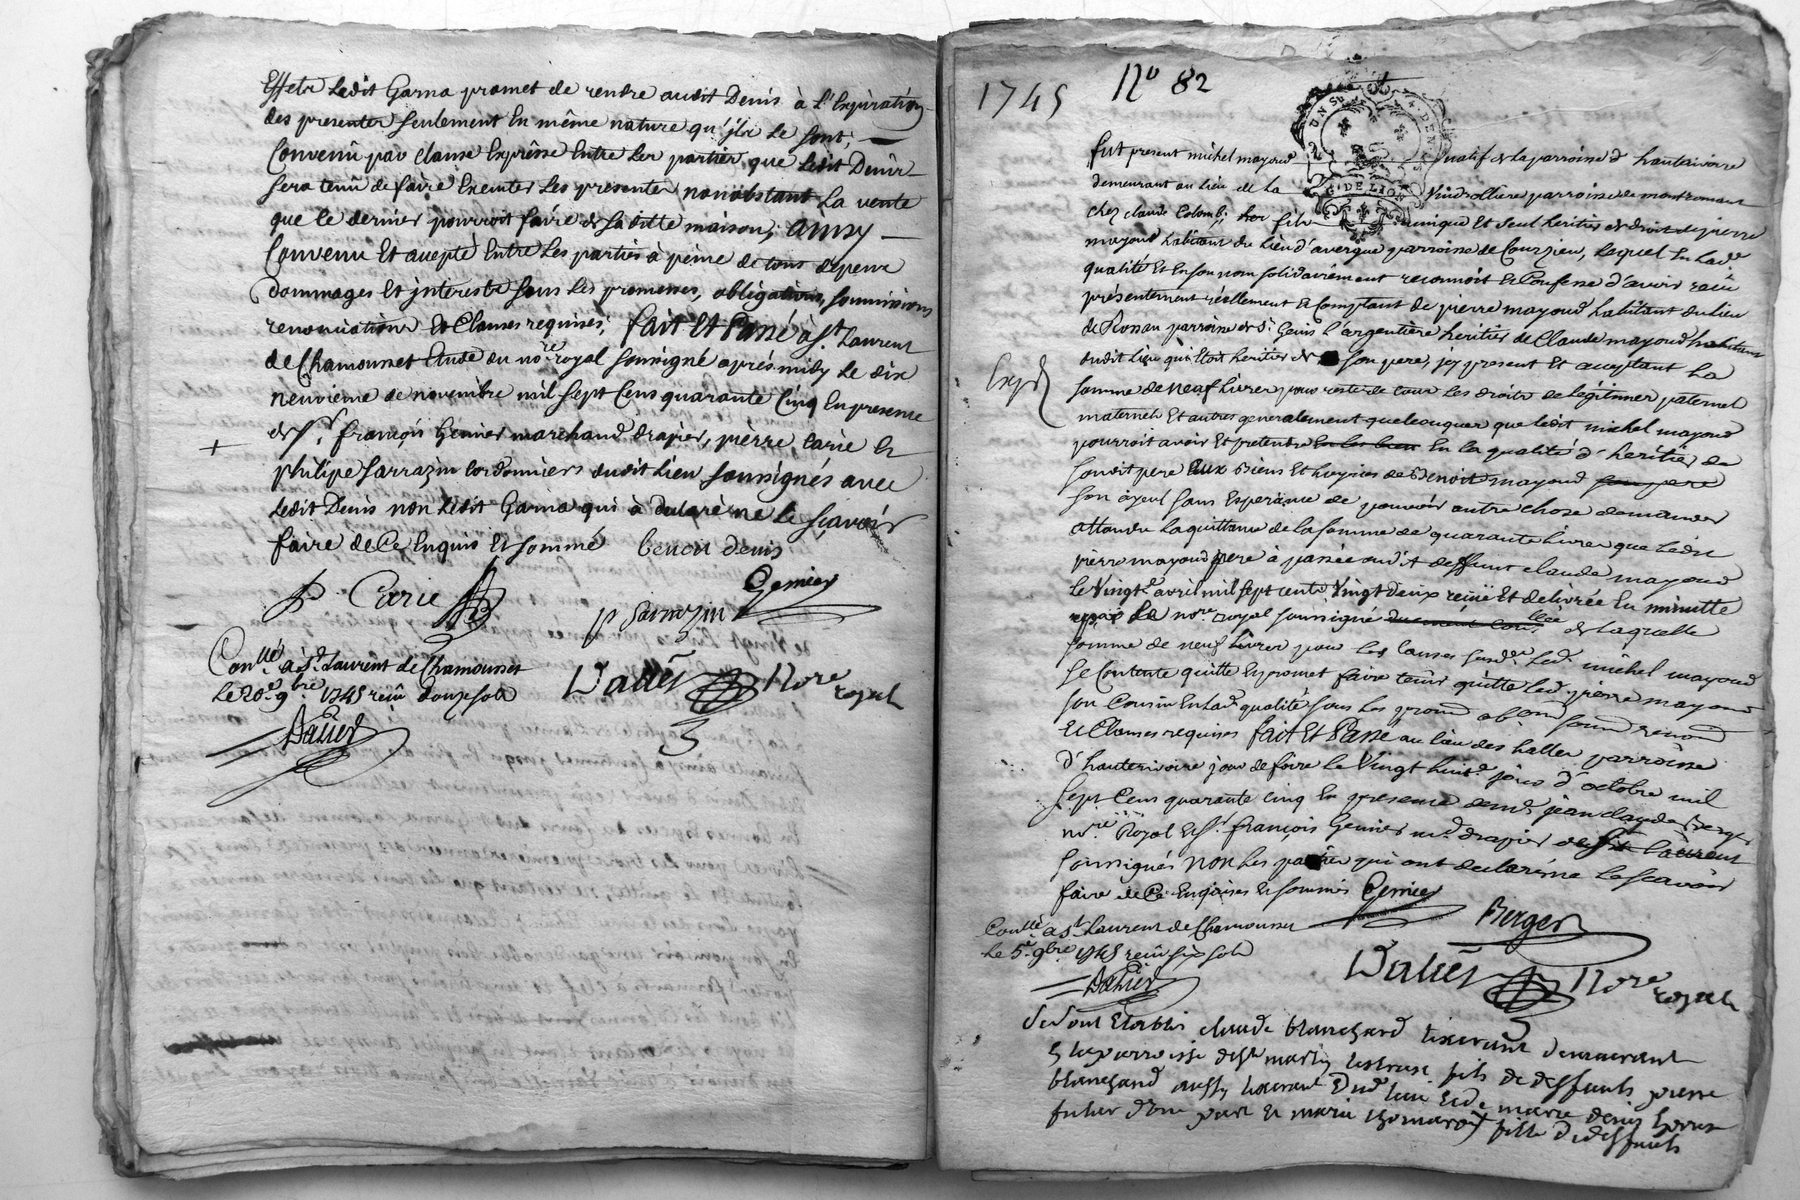 Effets Ledit Garna promet de rendre audit Denis à L'Expiration
des presentes seulement En même nature qu'jls Le sont;
Convenû par clause Expresse Entre Les parties, que Ledit Denis
sera tenû de faire Executer Les presentes nonobstant La vente
que ce dernier pourroit faire de Laditte maison; Ainsy
Convenu Et accepté Entre Les parties à peine de tous depens
Dommages Et jnterests sous Les promesses, obligations, soumissions
renonciations Et Clauses requises; fait Et Passé à St. Laurent
de Chamousset Etude du nore. royal soussigné aprés midy Le dix
neuvieme de novembre mil sept Cens quarante Cinq En presence
de Sr. françois Genier marchand drapier, pierre Carie Et
philipe Sarrazin Cordonniers dudit Lieu soussignés avec
Ledit Denis non Ledit Garna qui à declaré ne le sçavoir
faire de Ce Enquis Et sommé benoit denis
P. Carie
Genier
p Sarrazin
Conllé. à St. Laurent de Chamousset
Le 20e. 9bre 1745 reçû douze sols
Nore
royal
1745
No 82
UN SOL 4 DENIERS
G. DE LION
fut present michel mayoud natif de La parroisse d'hauterivoire
demeurant au Lieu de La parroisse de montromant
chez claude Colomb, fils unique Et seul heritier de droit de pierre
mayoud habitant du Lieu d'avergue parroisse de Courzieu, Lequel En Lade.
qualité Et En son nom solidairement reconnoit Et Confesse d'avoir reçu
présentement réellement Et Comptant de pierre mayoud habitant du Lieu
de Rossan parroisse de St. Genis L'argentiere heritier de Claude mayoud habitant
dudit Lieu qui Etoit heritier de son pere, jcy present Et acceptant La
Exp.d
somme de neuf Livres pour reste de tous Les droits de Légitimes paternels
maternels Et autres generalement quelconques que Ledit michel mayoud
pourroit avoir Et pretendre En La qualité d'heritier de
sondit pere aux Biens Et hoyries de Benoit mayoud son pere
son ayeul sans Esperance de pouvoir autre chose demander
attendu La quittance de La somme de quarante Livres que Ledit
pierre mayoud pere à passée audit deffunt claude mayoud
Le Vingte. avril mil sept cents Vingt deux reçüe Et delivrée En minutte
Le nore. royal soussigné de Laquelle
somme de neuf Livres pour Les Causes susd. Led. michel mayoud
se Contente quitte Et promet faire tenir quitte Led. pierre mayoud
son Cousin En Lad. qualité sous Les prom. obons. soum. renon.
Et Clauses requises fait Et Passé au Lieu des halles parroisse
d'hauterivoire jour de foire Le Vingt huite. jour d'octobre mil
sept Cens quarante cinq En presence de me. jean claude Berger
nore. Royal Et Sr. françois Genier md. drapier de St Laurent
soussignés non Les parties qui ont declaré ne Le scavoir
faire de Ce Enquises Et sommés Genier
Berger
Conllé. a St. Laurent de Chamousset
Le 5e. 9bre 1745 reçû six sols
Nore
royal
claude blanchard tixerant demeurant
parroisse de St martin Lestrat fils de deffunts pierre
blanchard marie denis
futur d'une part Et marie fille de deffunts